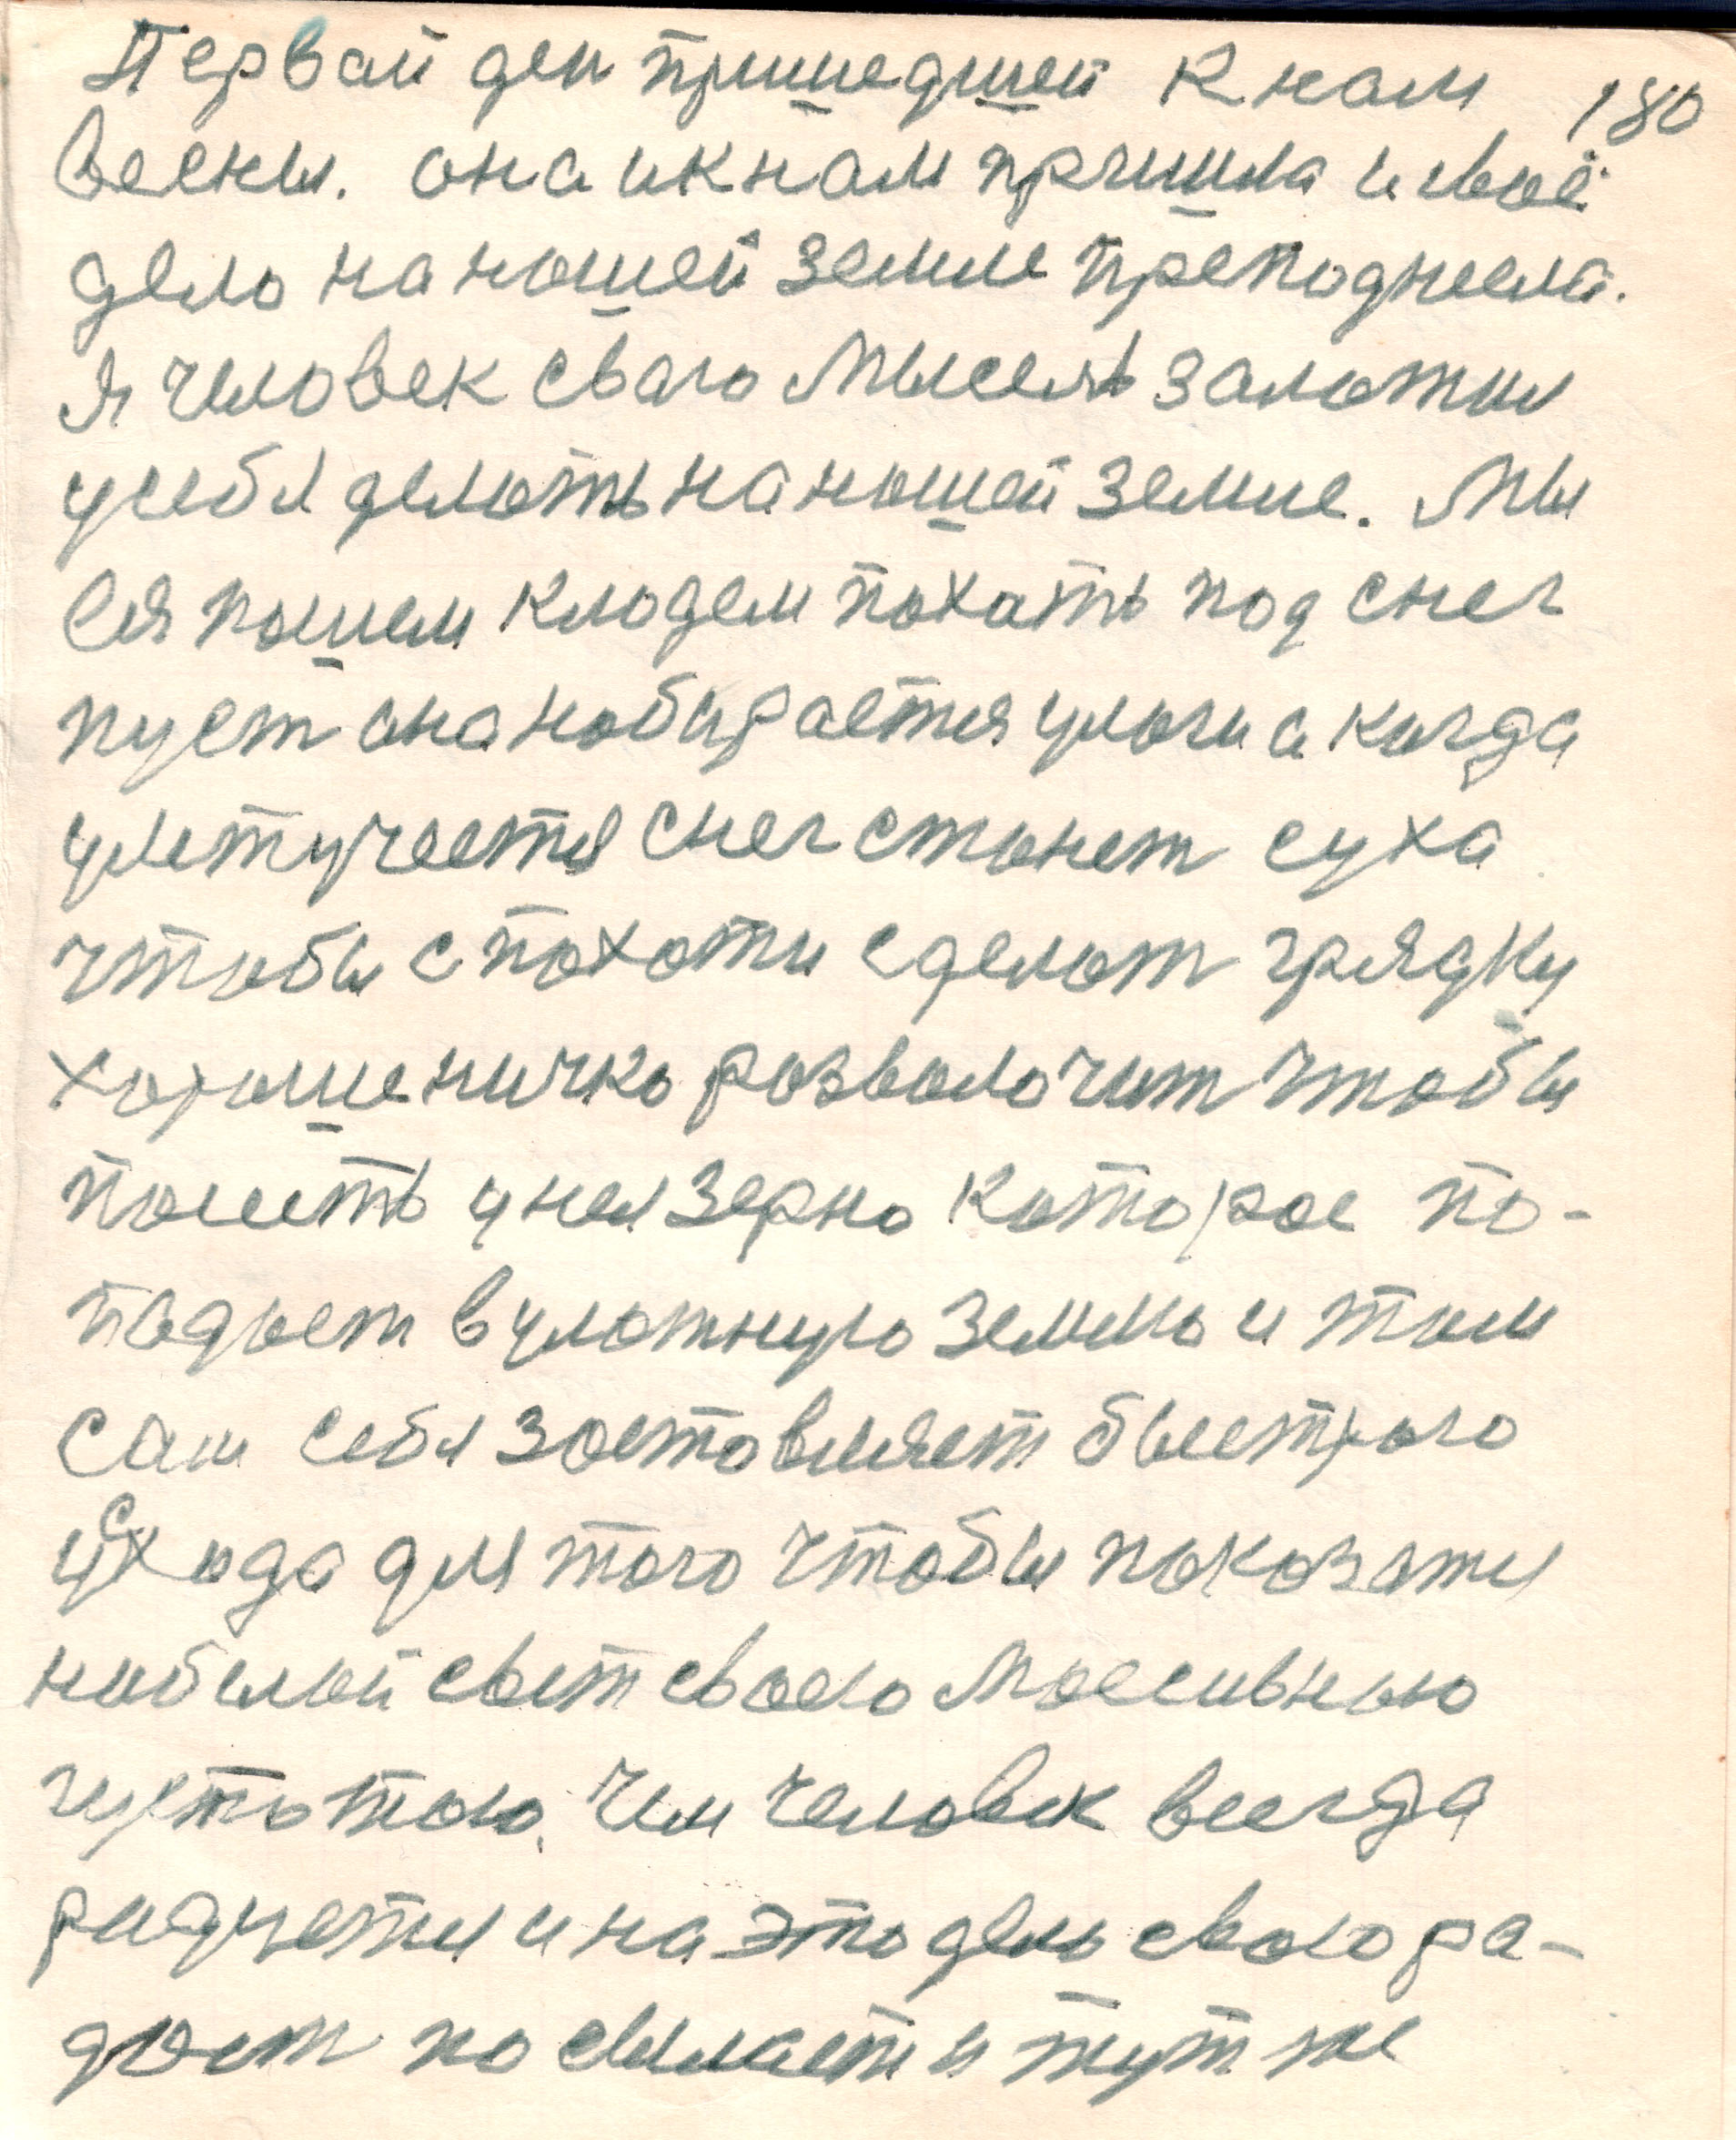 Первай ден пришедшей к нам 180
весны. она и к нам пришла и своё
дело на нашей земле преподнесла.
Я человек сваго мыселъ заложил
усебя делоть на нашей земле. Мы
ея пошем кладем похать под снег
пуст она набирается улаги а когда
улетучеется снег станет суха
чтобы с похоти сделот грядку
хорошеничко розволочит чтобы
посееть у нея зерно которое по-
подает в уложную землю и там
сам себя зоставляет быстраго
усхода для того чтобы показатя
на белой свет своею моссивною
густотою. Чем человек всегда
радуется и на это дело свою ра-
дост посылает и тут же